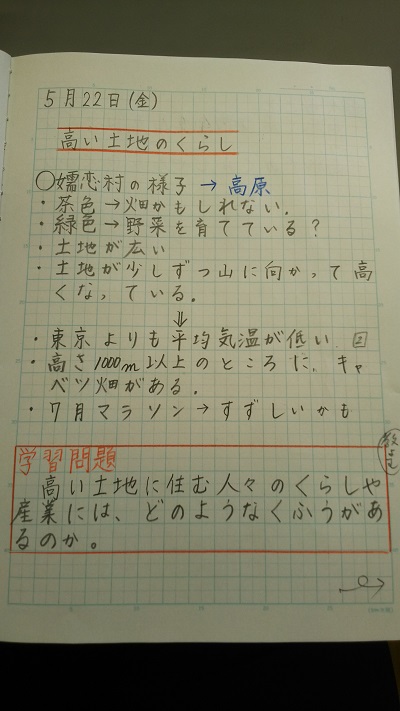 5月22日(金)
高い土地のくらし
○嬬恋村の様子 → 高原
・茶色→畑かもしれない。
・緑色→野菜を育てている?
・土地が広い
・土地が少しずつ山に向かって高
くなっている。
⇓
・東京よりも平均気温が低い。
・高さ1000m以上のところに、キャ
ベツ畑がある。
・7月マラソン→すずしいかも
学習問題
高い土地に住む人々のくらしや
産業には、どのようなくふうがあ
るのか。